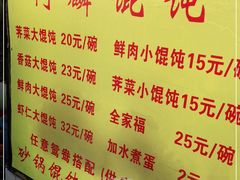 馄饨
荠菜大馄饨 20元/碗
香菇大馄饨 23元/碗
鲜肉大馄饨 25元/碗
虾仁大馄饨 32元/碗
鲜肉小馄饨 15元/碗
荠菜小馄饨 15元/碗
全家福 25元/碗
加水煮蛋 2元/
任意鸳鸯搭配
砂锅馄饨